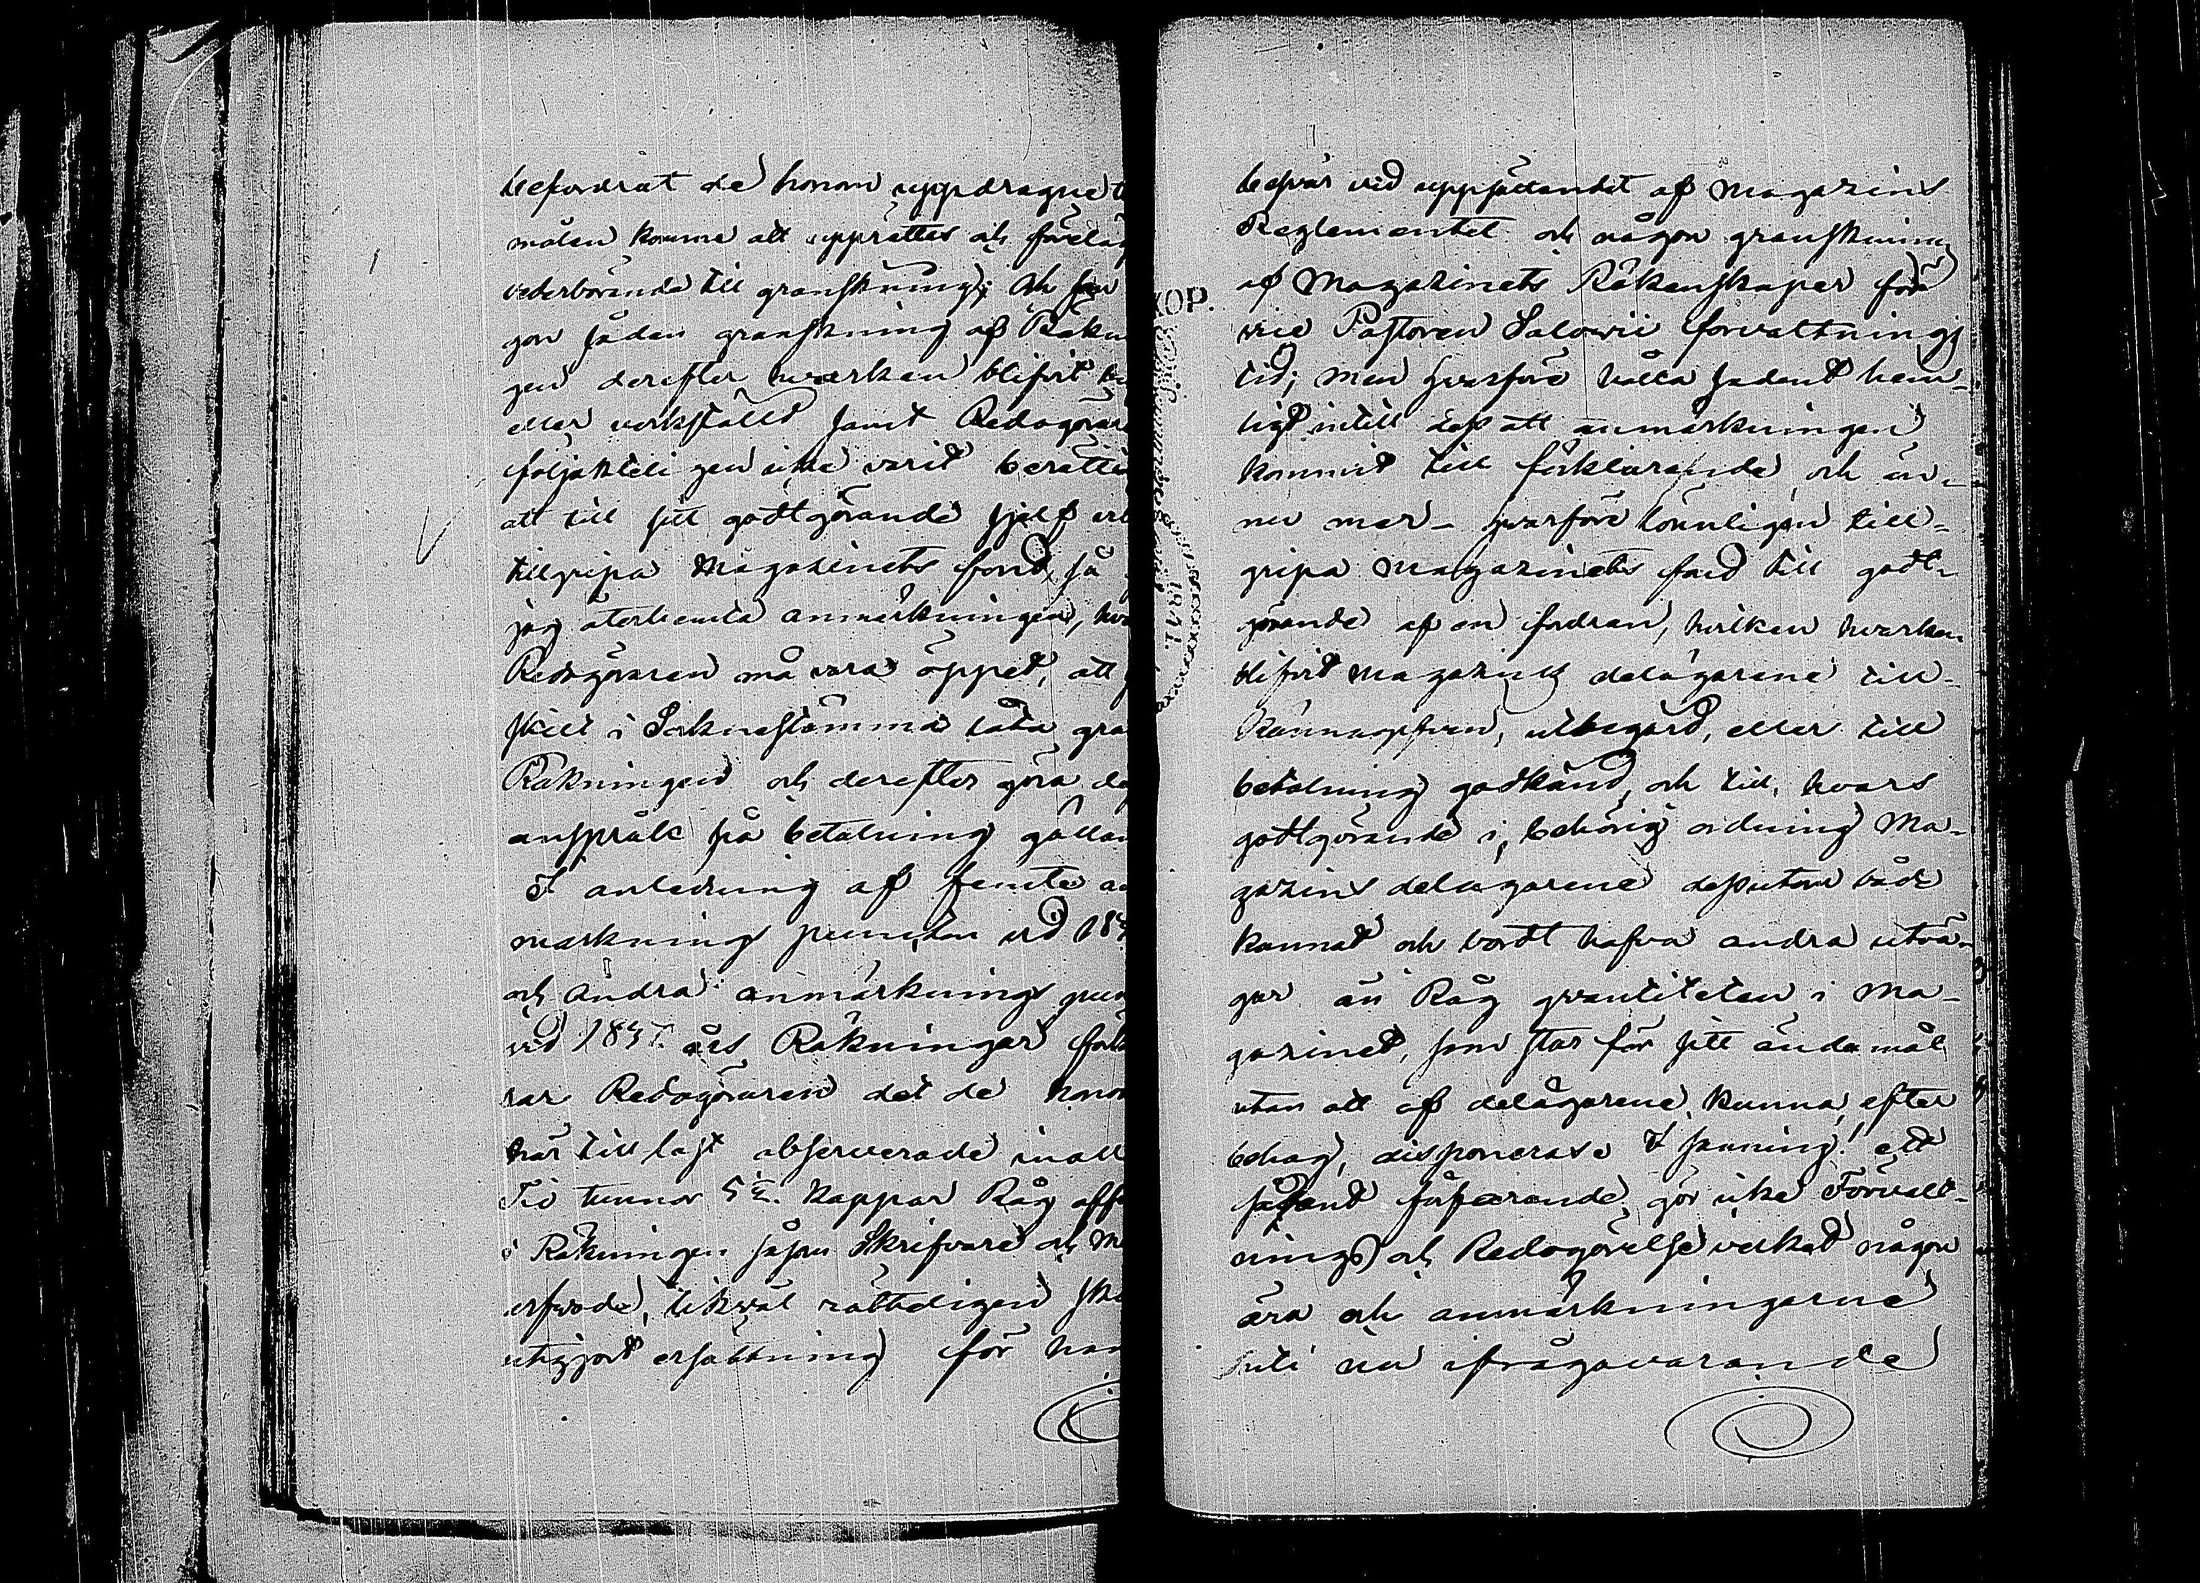 befordrat de honom uppdragne
målen komme att upprättas och föreläg
vederbörande till granskning; Och
gon sådan granskning af Räkn
gen derefter hvarken blifvit
eller verkställd samt Redogörar
följakteligen icke varit berätti
att till sitt godtgörande sjelf
tillgripa Magazinets fond så
jag återhemta anmärkningen,
Redogöraren må vara öppet, att
skilt i Sockne stämma låta gra
Räkningen och derefter göra
anspråk på betalning gällan
I anledning af femte an
märknings puncten vid
och andra anmärknings pun
vid års Räkningar
rar Redogöraren det de honom
här till last observerade inall
Tio tunnor 5 kappar Råg
i Räkningen såsom Skrifvare och
arfvode, likväl rätteligen
utgjort ersättning för han
KOP.
besvär vid uppsättandet af Magazins
Reglementet och någon granskning
af Magazinets Räkenskaper för
vice Pastoren Salovii forvaltnings
tid; men hvarföre hålla sådant hem-
ligt intill dess att anmärkningen
kommit till förklarande och än-
nu mer - hvarföre lönnligen till-
gripa magazinets fond till godt-
görande af en fordran, hvilken hvarken
blifvit magazins delägarene till-
kännagifven, utbegärd, eller till
betalning godkänd och till hvars
godtgörande i behörig ordning Ma-
gazins delägarene dessutom både
kunnat och bordt hafva andra utvä-
gar än Råg qvantiteten i Ma-
gazinet, som står för sitt ändamål
utan att af delägarene kunna, efter
behag, disponeras. I sanning! ett
sådant förfarande gör icke Förvalt-
nings och Redogörelse verket någon
ära och anmärkningarne
uti nu ifrågavarande